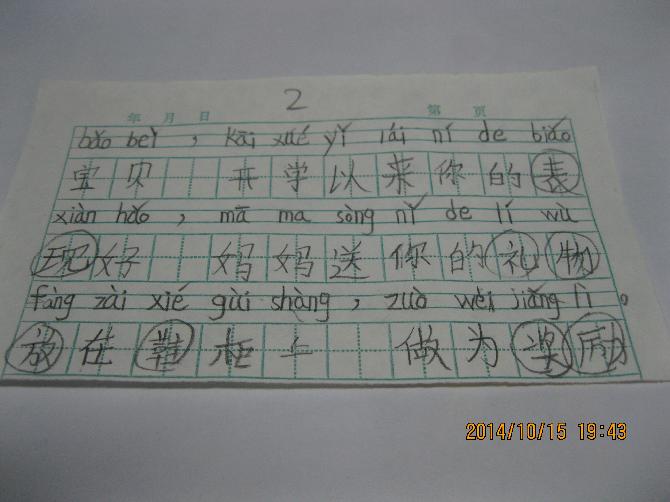 2
年 月 日 第 页
bǎo beì , kāi xué yǐ lái nǐ de biǎo
宝贝 开学以来你的表
xiàn hǎo , mā ma sòng nǐ de lǐ wù
现好 妈妈送你的礼物
fàng zài xié guì shàng , zuò wéi jiǎng lì 。
放在鞋柜上 做为奖励
2014/10/15 19:43